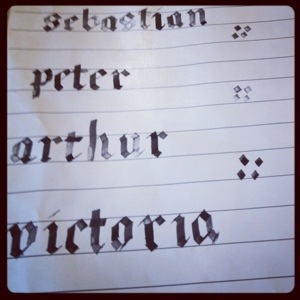 sebastian
peter
arthur
victoria